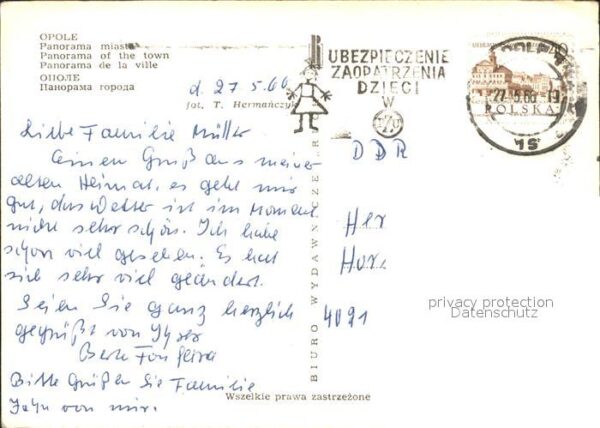 OPOLE
Panorama miasta
Panorama of the town
Panorama de la ville
ОПОЛЕ
Панорама города
fot. T. Hermańczyk
d. 27.5.66
UBEZPIECZENIE
ZAOPATRZENIA
DZIECI
W
PZU
OPOLE
27.5.66 19
40
POLSKA
Liebe Familie Müller
Einen Gruß aus meiner
alten Heimat, es geht mir
gut, das Wetter ist im Moment
nicht sehr schön. Ich habe
schon viel gesehen. Es hat
sich sehr viel geändert.
Seien Sie ganz herzlich
gegrüßt von
Bitte Grüßen Sie Familie
Jahn von mir.
DDR
Her
Hor
4091
privacy protection
Datenschutz
BIURO WYDAWNICZE
Wszelkie prawa zastrzeżone